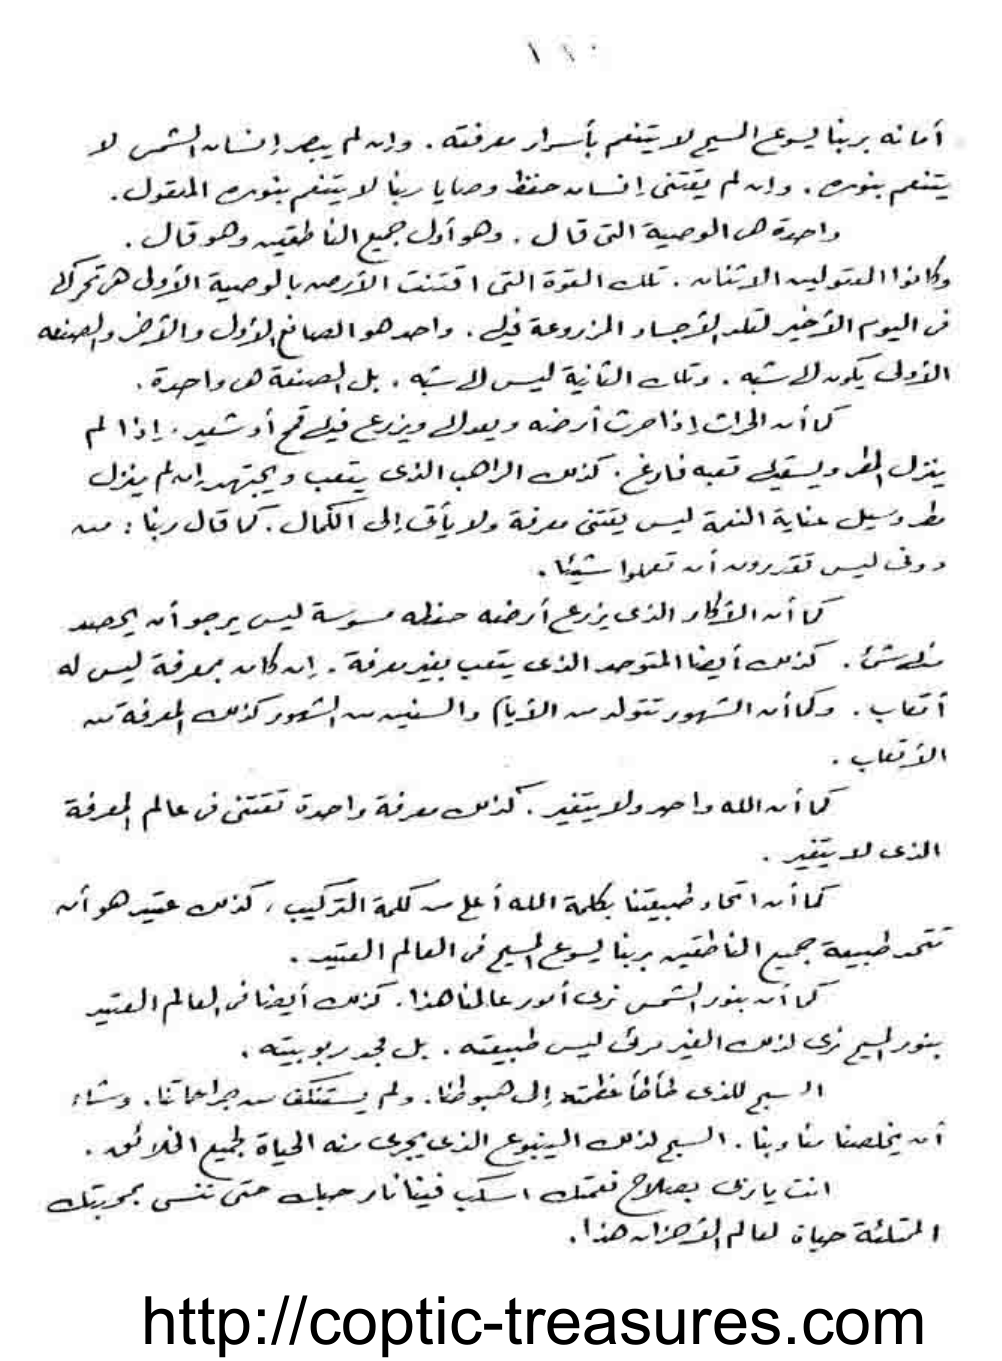 ١٤٠
أمانه بربنا يسوع المسيح لا يتنعم بأسرار معرفته . وإن لم يبصر إنسان الشمس لا
يتنعم بنوره . وإن لم يقتنى إنسان حفظ وصايا ربنا لا يتنعم بنوره المقول .
واحدة هى الوصية التى قال . وهو أول جميع الناطقين وهو قال .
وكانوا المتولين الاثنان . تلك القوة التى اقتنت الأرض بالوصية الأولى هى تحركها
فى اليوم الأخير لتلد الأجساد المزروعة فيها . واحد هو الصانع الأول والآخر والصنعه
الأولى يكون لها شبه . وتلك الثانية ليس لها شبه . بل الصنعة هى واحدة .
كما أن الحراث إذا حرث أرضه ويعدلها ويزرع فيها قمح أو شعير . إذا لم
ينزل المطر ويسقيها تعبه فارغ . كذلك الراهب الذى يتعب ويجتهد إن لم ينزل
مطر وسيل عناية النعمة ليس يقتنى معرفة ولا يأتى إلى الكمال . كما قال ربنا : من
دونى ليس تقدرون أن تعملوا شيئا .
كما أن الأكار الذى يزرع أرضه حنطه مسوسة ليس يرجو أن يحصد
منها شئ . كذلك أيضا المتوحد الذى يتعب بغير معرفة . إن كان بمعرفة ليس له
أتعاب . وكما أن الشهور تتولد من الأيام والسنين من الشهور كذلك المعرفة من
الأتعاب .
كما أن الله واحد ولا يتغير . كذلك معرفة واحدة تقتنى فى عالم المعرفة
الذى لا يتغير .
كما أن اتحاد طبيعتنا بكلمة الله أعلى من كلمة التركيب ، كذلك عتيد هو أن
تتحد طبيعة جميع الناطقين بربنا يسوع المسيح فى العالم العتيد .
كما أن بنور الشمس نرى أمور عالمنا هذا . كذلك أيضا فى العالم العتيد
بنور المسيح نرى لذلك الغير مرئى ليس طبيعته . بل مجد ربوبيته .
السبح للذى طأطأ عظمته إلى هبوطنا . ولم يستنكف من جراحاتنا . وشاء
أن يخلصنا منا وبنا . السبح لذلك الينبوع الذى يجرى منه الحياة لجميع الخلائق .
انت يا ربى بصلاح نعمتك اسكب فينا نار حبك حتى ننسى بمحبتك
الممتلئة حياة لعالم الأحزان هذا .
http://coptic-treasures.com